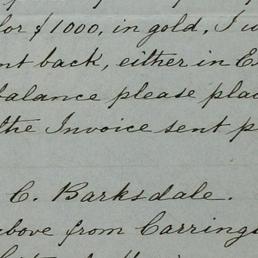 for $1000, in gold, I w
nt back, either in E
balance please plac
the Invoice sent p
C. Barksdale.
above from Carring